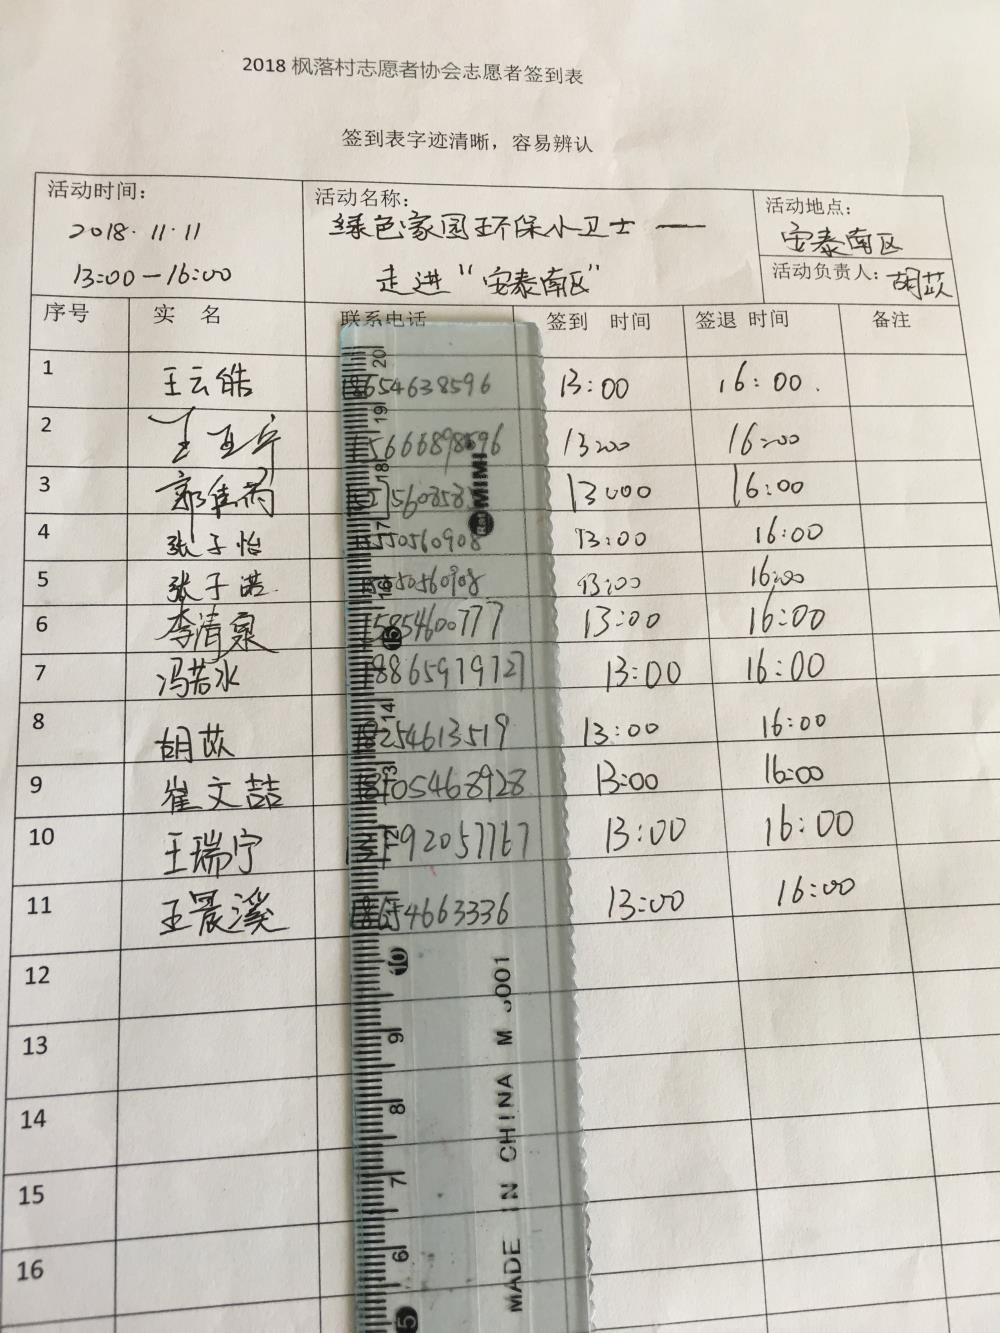 2018 枫落村志愿者协会志愿者签到表
签到表字迹清晰，容易辨认
活动时间：
2018.11.11
13:00—16:00
活动名称：
绿色家园环保小卫士——
走进“安泰南区”
活动地点：
安泰南区
活动负责人：胡苡
序号 实 名 联系电话 签到 时间 签退 时间 备注
1 王云皓 18654638596 13:00 16:00.
2 13:00 16:00
3 13:00 16:00
4 张子怡 13:00 16:00
5 张子诺 13:00 16:00
6 李清泉 15854600777 13:00 16:00
7 冯若水 18865979727 13:00 16:00
8 胡苡 18254613519 13:00 16:00
9 崔文喆 18105468928 13:00 16:00
10 王瑞宁 13:00 16:00
11 王晨溪 18654663336 13:00 16:00
12
13
14
15
16
20
19
18
17
16
15
14
13
12
10
9
8
7
6
5
MIMI
MADE IN CHINA M 5001